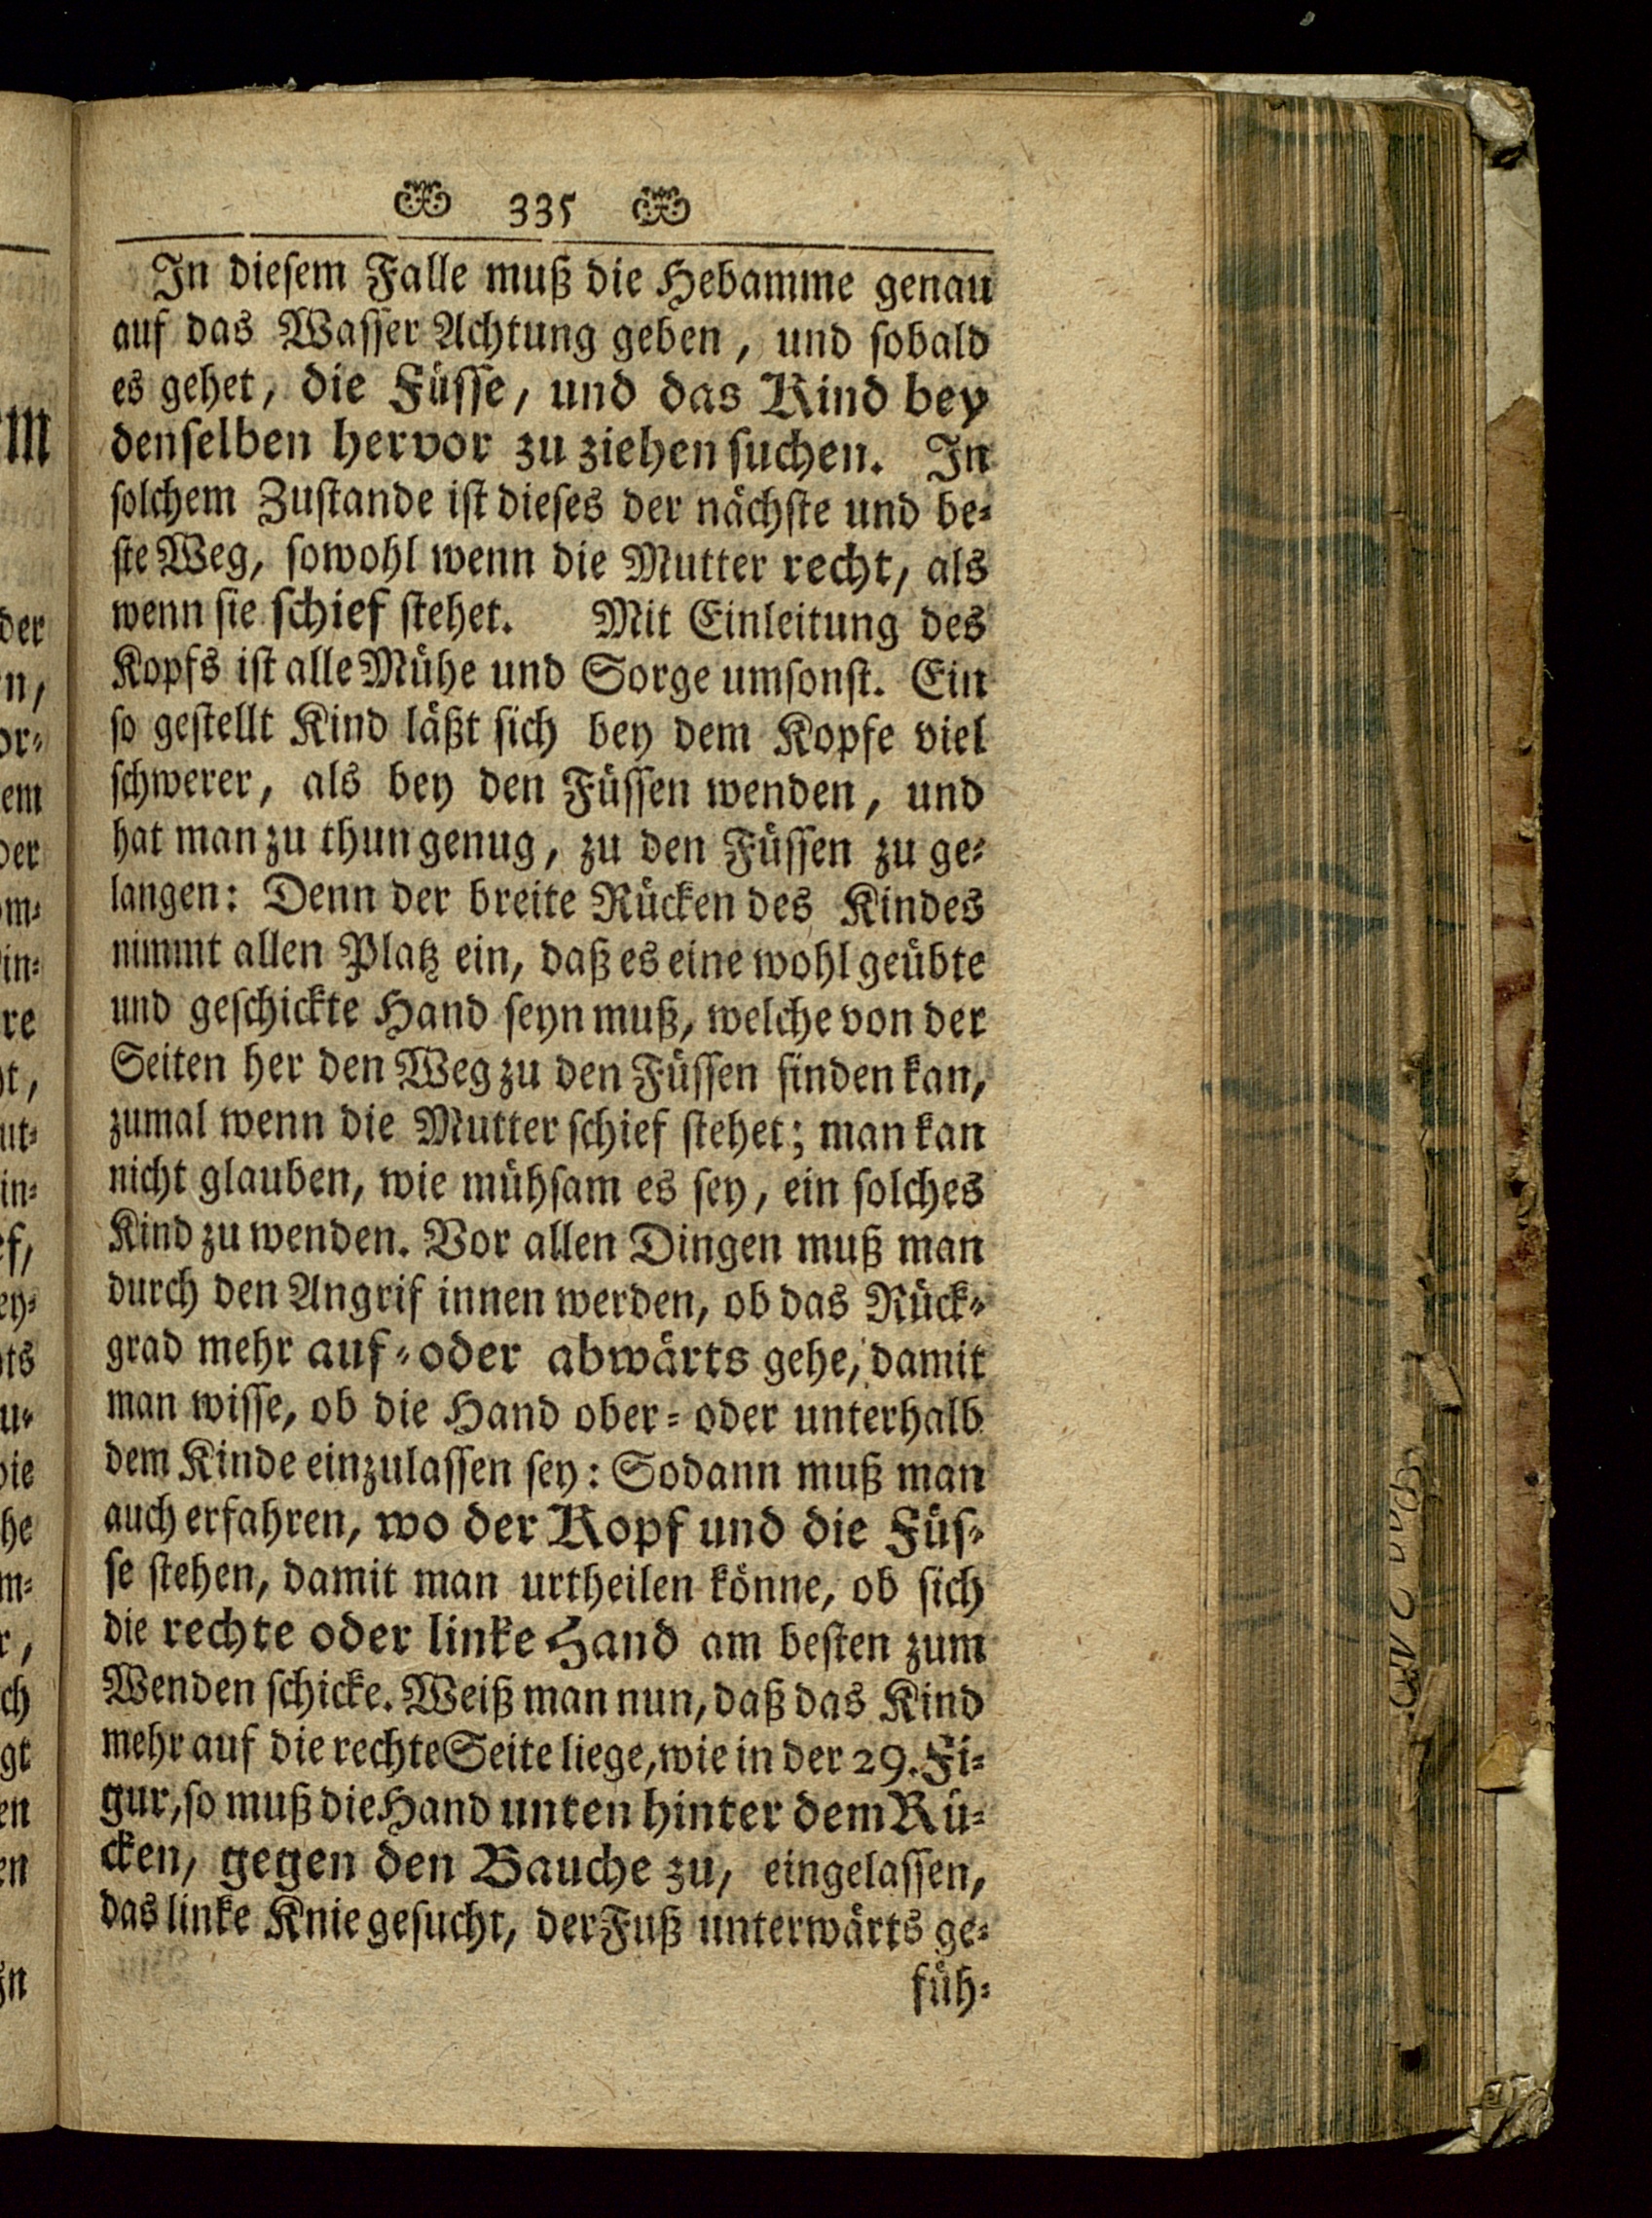 335
In diesem Falle muß die Hebamme genau
auf das Wasser Achtung geben, und sobald
es gehet, die Füsse, und das Kind bey
denselben hervor zu ziehen suchen. In
solchem Zustande ist dieses der nächste und be-
ste Weg, sowohl wenn die Mutter recht, als
wenn sie schief stehet. Mit Einleitung des
Kopfs ist alle Mühe und Sorge umsonst. Ein
so gestellt Kind läßt sich bey dem Kopfe viel
schwerer, als bey den Füssen wenden, und
hat man zu thun genug, zu den Füssen zu ge-
langen: Denn der breite Rücken des Kindes
nimmt allen Platz ein, daß es eine wohl geübte
und geschickte Hand seyn muß, welche von der
Seiten her den Weg zu den Füssen finden kan,
zumal wenn die Mutter schief stehet; man kan
nicht glauben, wie mühsam es sey, ein solches
Kind zu wenden. Vor allen Dingen muß man
durch den Angrif innen werden, ob das Rück-
grad mehr auf- oder abwärts gehe, damit
man wisse, ob die Hand ober- oder unterhalb
dem Kinde einzulassen sey: Sodann muß man
auch erfahren, wo der Kopf und die Füs-
se stehen, damit man urtheilen könne, ob sich
die rechte oder linke Hand am besten zum
Wenden schicke. Weiß man nun, daß das Kind
mehr auf die rechte Seite liege, wie in der 29. Fi-
gur, so muß die Hand unten hinter dem Rü-
cken, gegen den Bauche zu, eingelassen,
das linke Knie gesucht, der Fuß unterwärts ge-
füh-